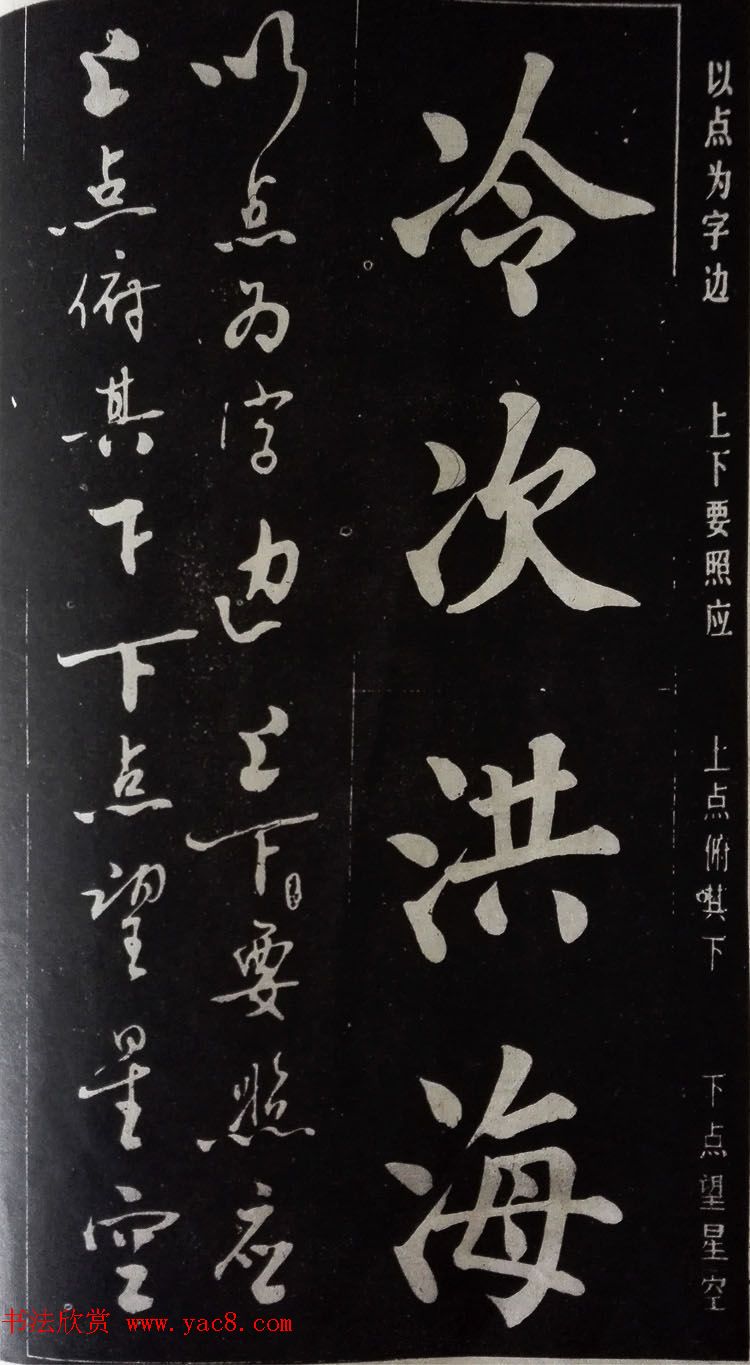 以点为字边 上下要照应 上点俯其下 下点望星空
冷次洪海
以点为字边上下要照应
上点俯其下下点望星空
书法欣赏 www.yac8.com